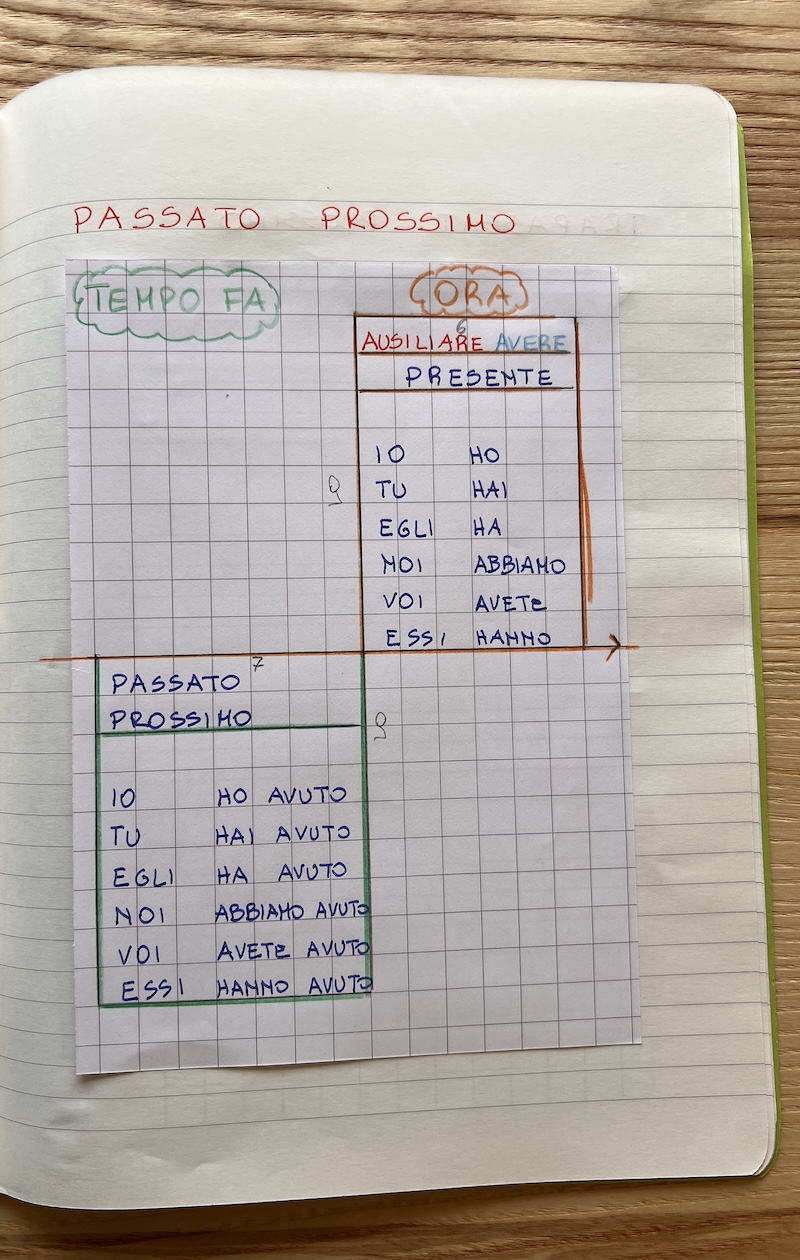 PASSATO PROSSIMO
TEMPO FA
ORA
6
AUSILIARE AVERE
PRESENTE
IO HO
TU HAI
9
EGLI HA
NOI ABBIAMO
VOI AVETE
ESSI HANNO
7
PASSATO
PROSSIMO
9
IO HO AVUTO
TU HAI AVUTO
EGLI HA AVUTO
NOI ABBIAMO AVUTO
VOI AVETE AVUTO
ESSI HANNO AVUTO